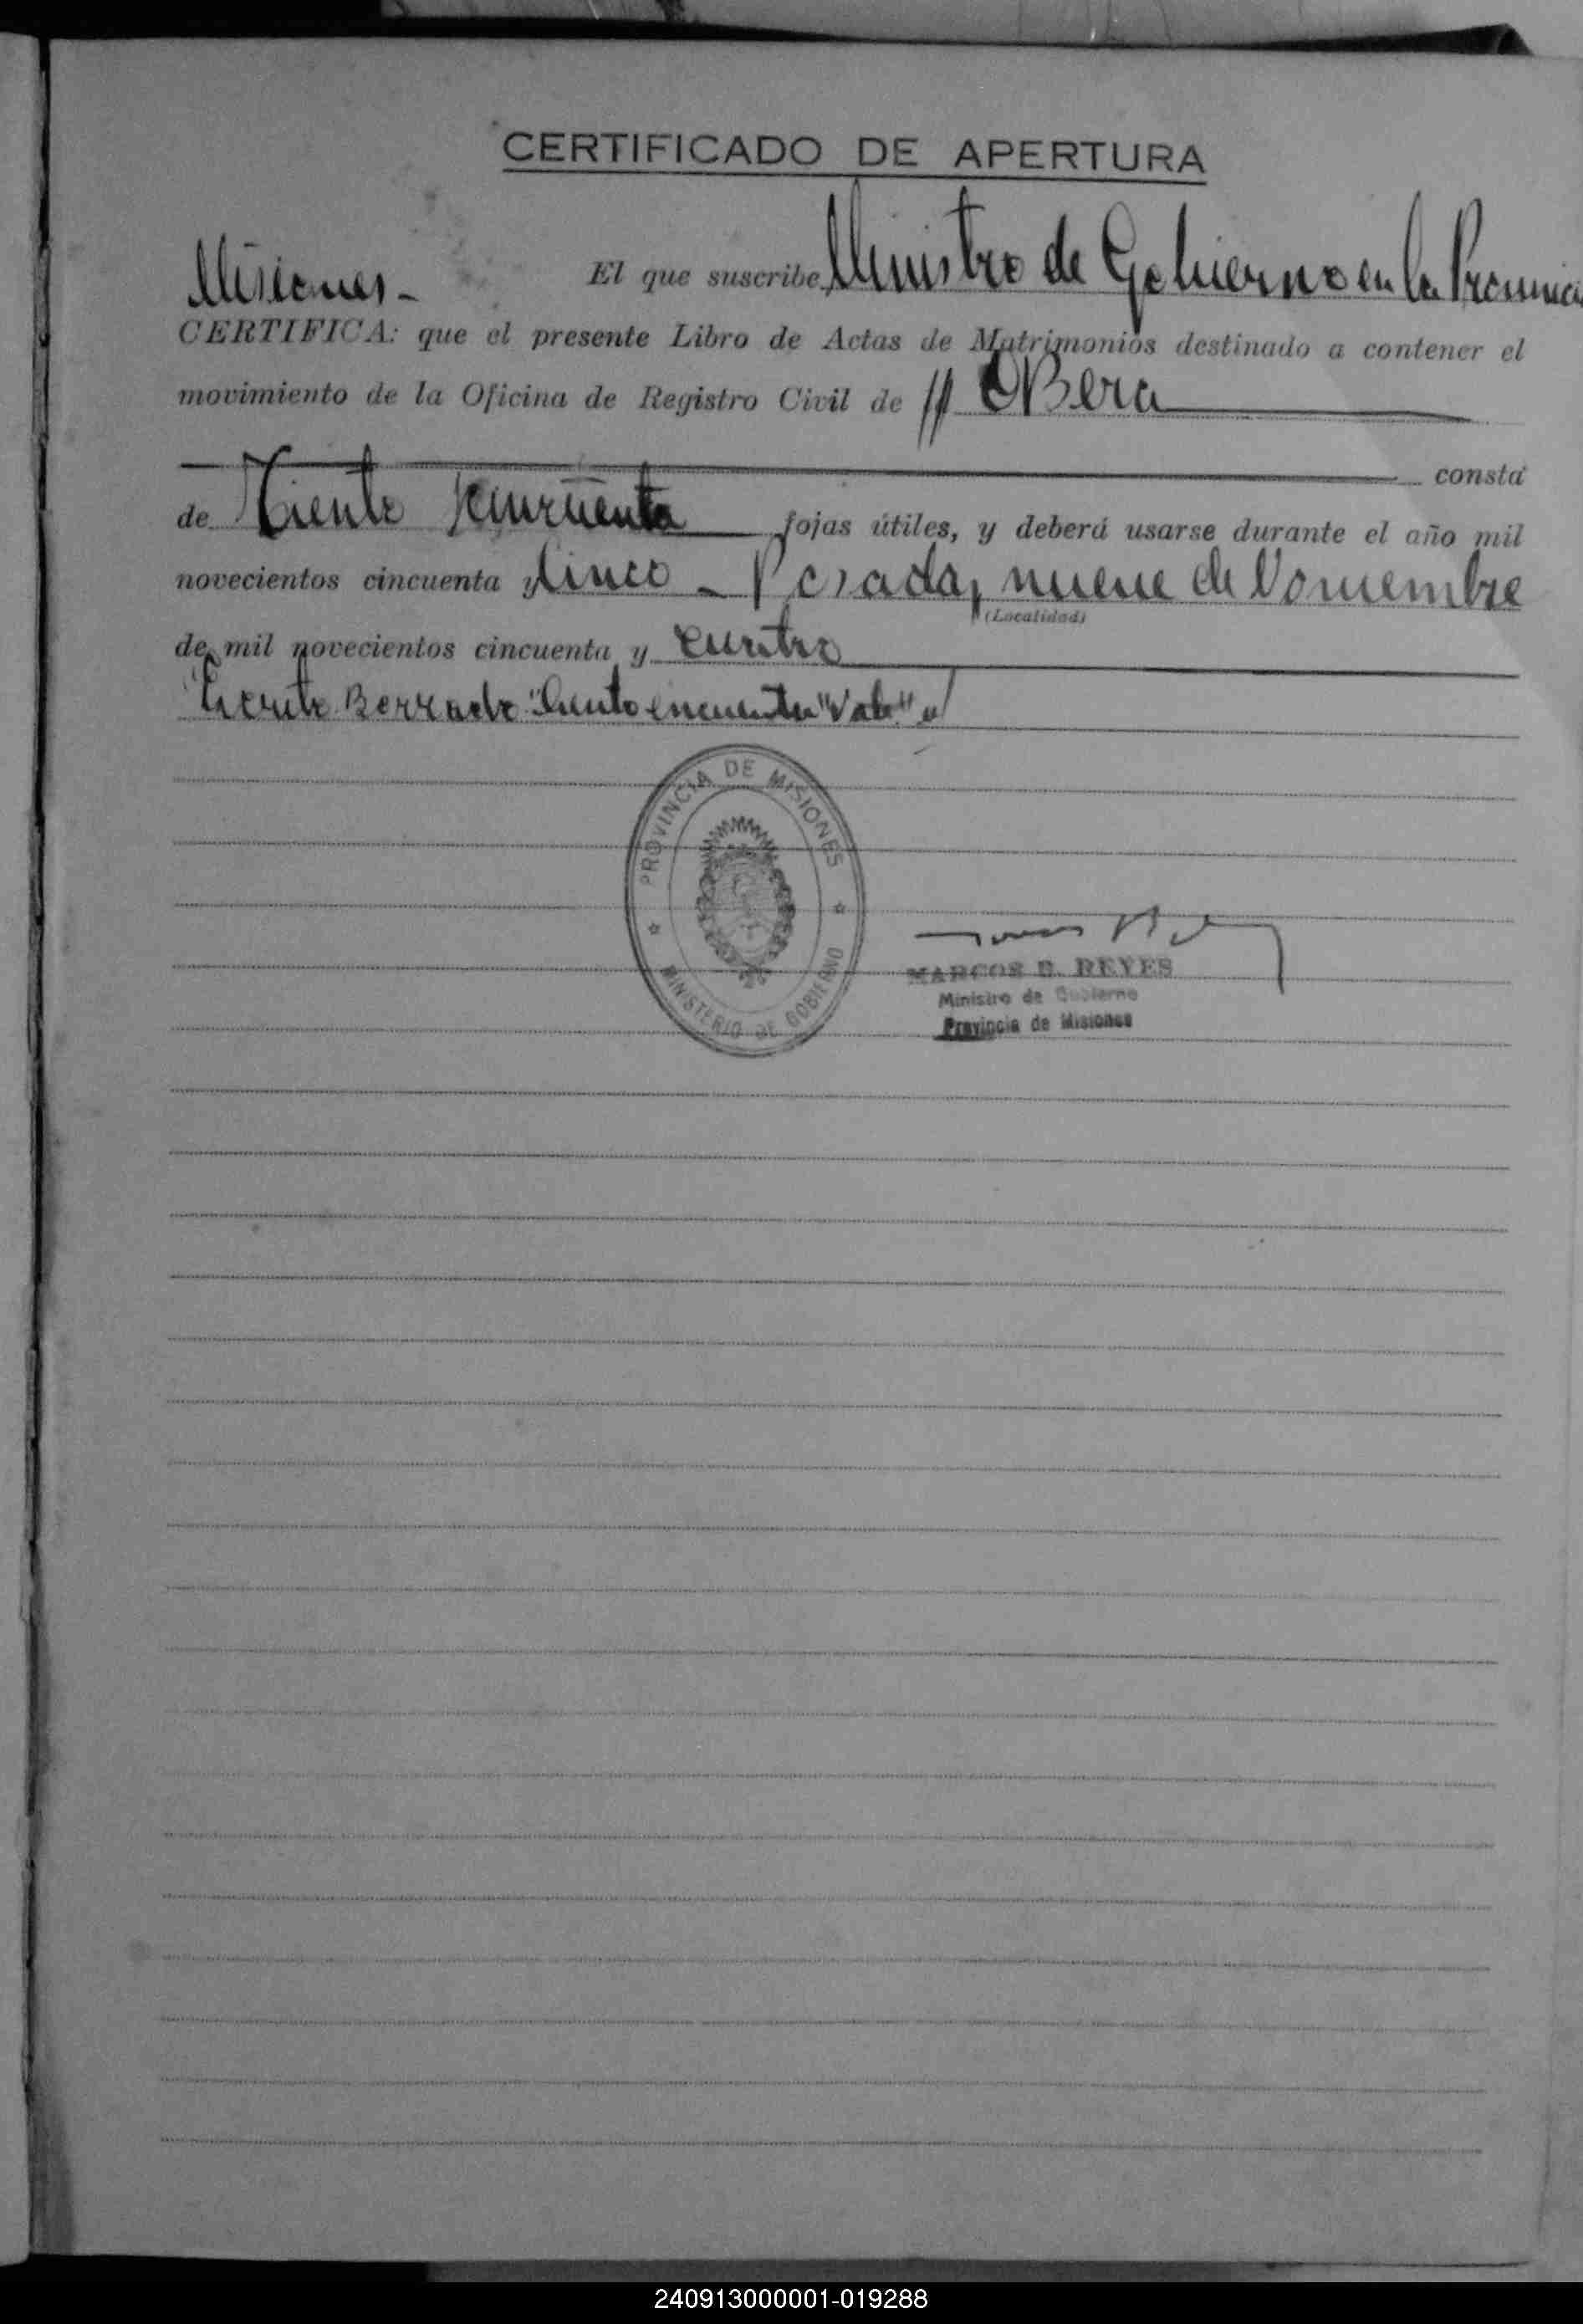 CERTIFICADO DE APERTURA
El que suscribe, Ministro de Gobierno en la Provincia
Misiones -
CERTIFICA: que el presente Libro de Actas de Matrimonios destinado a contener el
movimiento de la Oficina de Registro Civil de // OBera
consta
de Ciento Cincuenta fojas útiles, y deberá usarse durante el año mil
novecientos cincuenta y Cinco - Posadas, nueve de Noviembre
(Localidad)
de mil novecientos cincuenta y cuatro
Escrito Borrado "Ciento cincuenta" Vale"
PROVINCIA DE MISIONES
MINISTERIO DE GOBIERNO
MARCOS REYES
Ministro de Gobierno
Provincia de Misiones
240913000001-019288